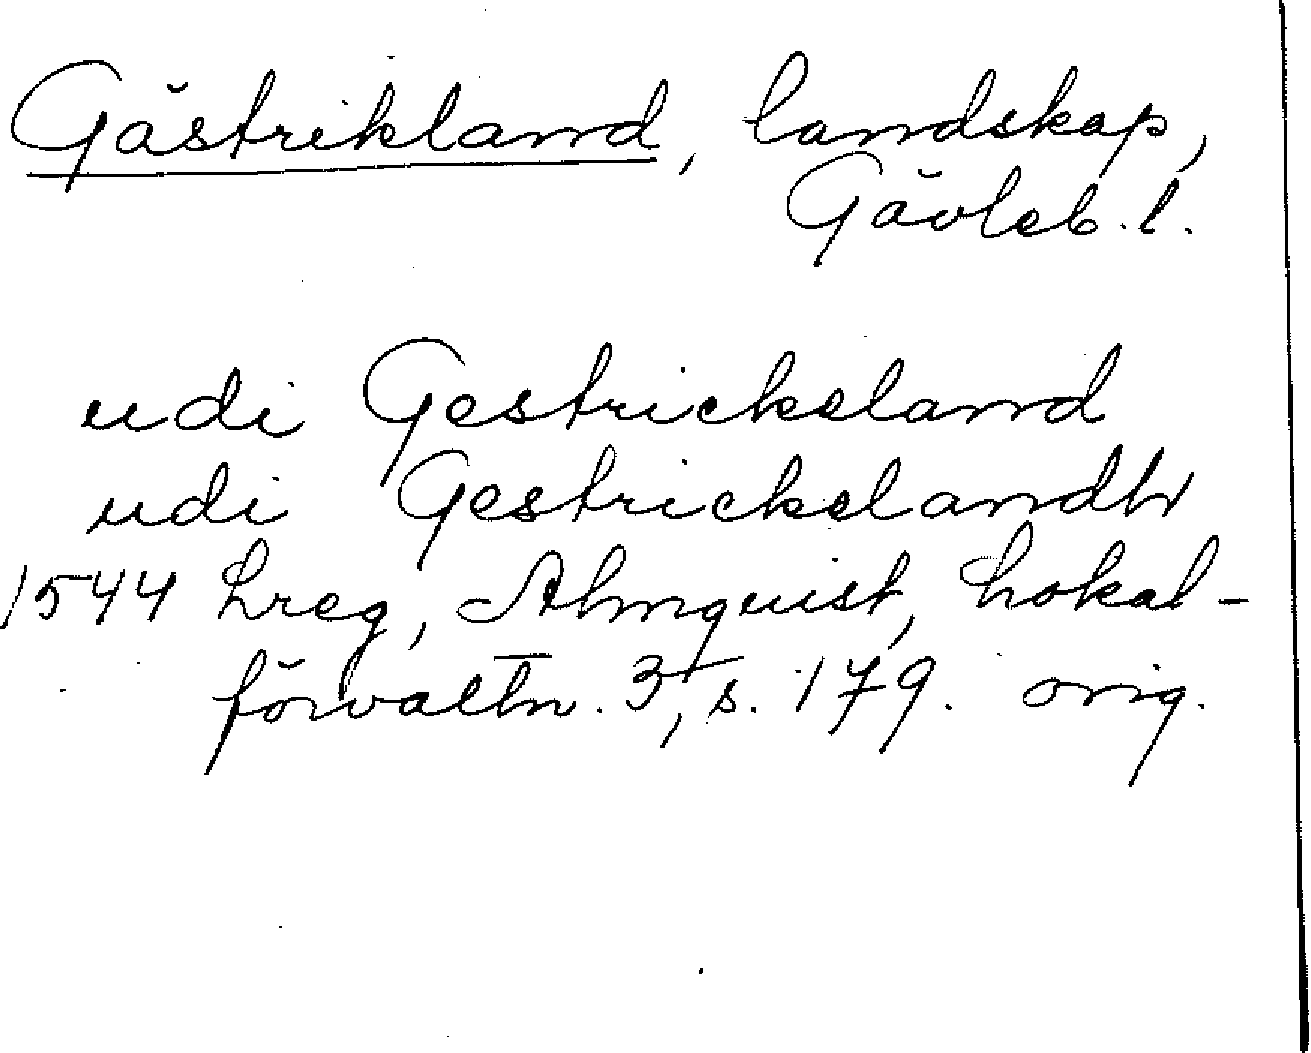 Gästrikland, landskap,
Gävleb. l.
udi Gestrickeland
udi Gestrickelandh
1544 Lreg, Almquist, Lokal-
förvaltn. 3, s. 179. orig.